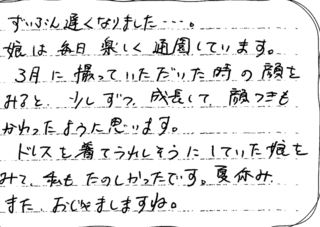 ずいぶん遅くなりました…。
娘は毎日楽しく通園しています。
3月に撮っていただいた時の顔を
みると、少しずつ、成長して、顔つきも
かわったように思います。
ドレスを着てうれしそうにしていた娘を
みて、私もたのしかったです。夏休み
また、おじゃましますね。